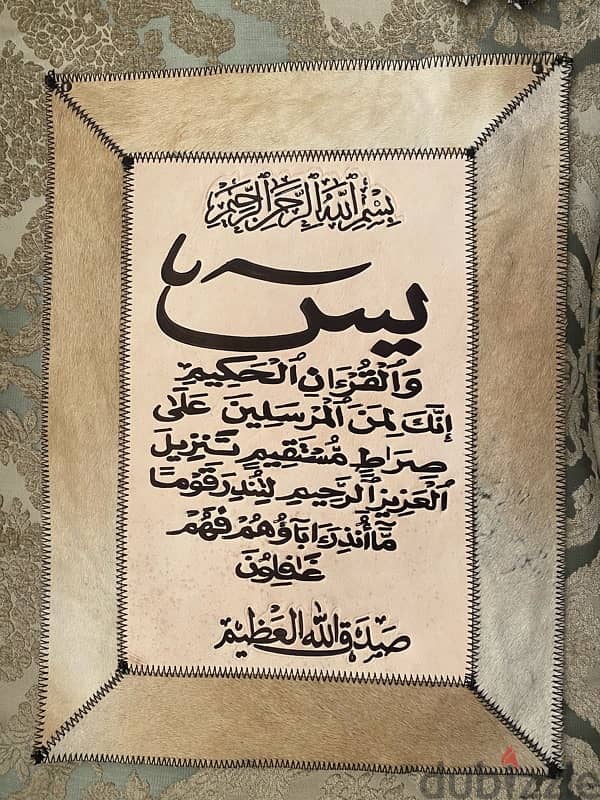 بِسْمِ ٱللَّهِ ٱلرَّحْمَٰنِ ٱلرَّحِيمِ
يسٓ
وَٱلْقُرْءَانِ ٱلْحَكِيمِ
إِنَّكَ لَمِنَ ٱلْمُرْسَلِينَ عَلَىٰ
صِرَاطٍ مُسْتَقِيمٍ تَنزِيلَ
ٱلْعَزِيزِ ٱلرَّحِيمِ لِتُنذِرَ قَوْمًا
مَّا أُنذِرَ ءَابَاؤُهُمْ فَهُمْ
غَافِلُونَ
صَدَقَ اللهُ الْعَظِيم
dubizzle